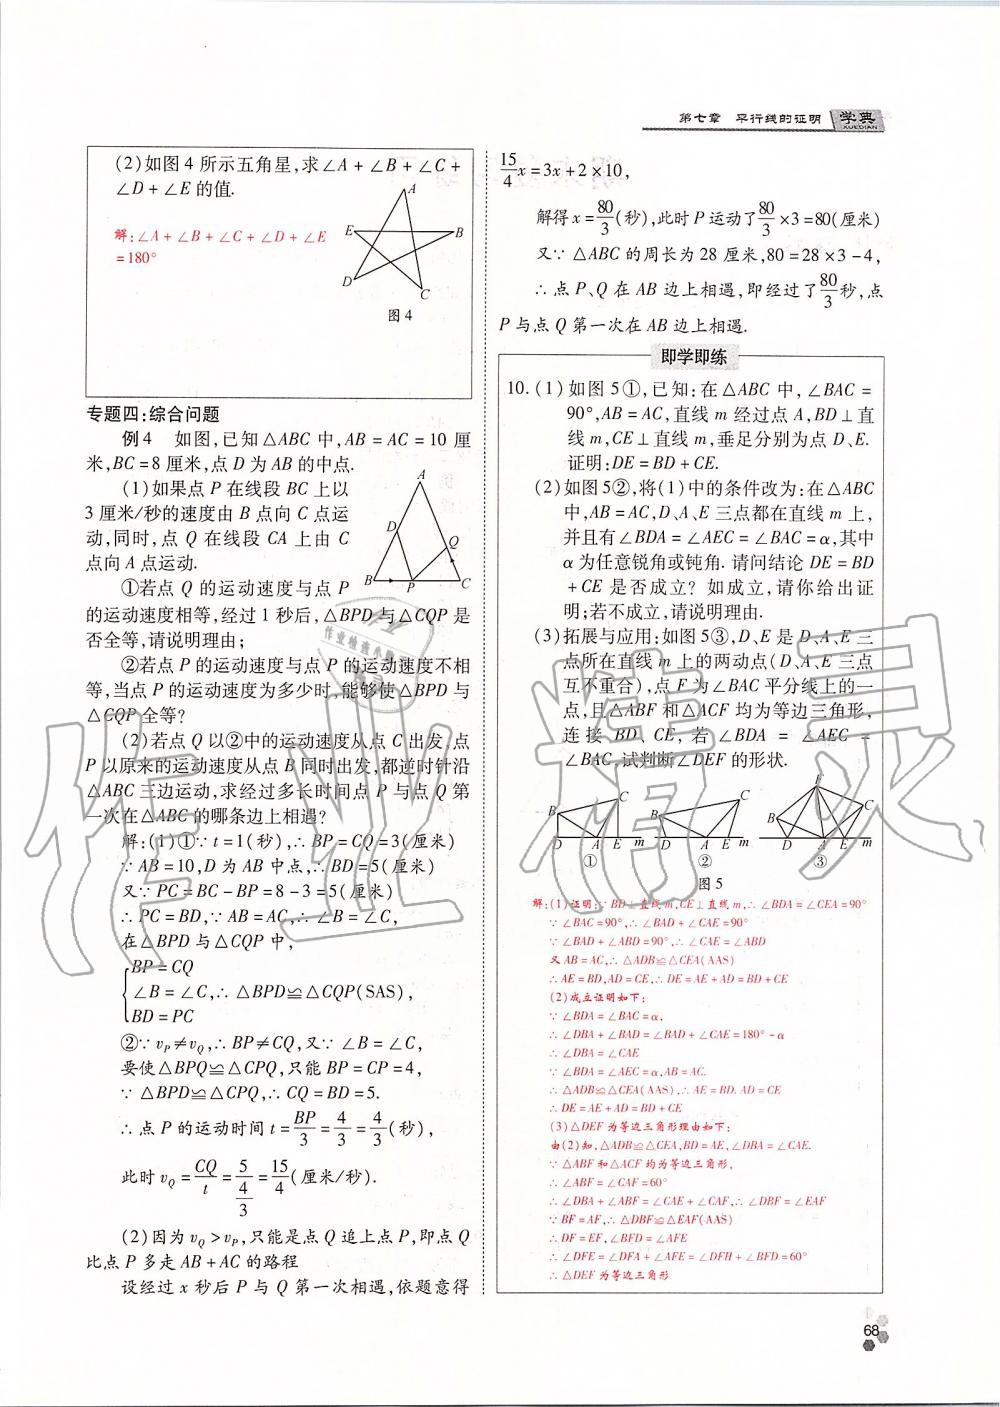 第七章 平行线的证明 学典
XUEDIAN
(2)如图4所示五角星,求∠A+∠B+∠C+
∠D+∠E的值.
解:∠A+∠B+∠C+∠D+∠E
=180°
A
E
B
D
C
图4
专题四:综合问题
例4 如图,已知△ABC中,AB=AC=10厘
米,BC=8厘米,点D为AB的中点.
(1)如果点P在线段BC上以
3厘米/秒的速度由B点向C点运
动,同时,点Q在线段CA上由C
点向A点运动.
A
D
Q
B
P
C
①若点Q的运动速度与点P
的运动速度相等,经过1秒后,△BPD与△CQP是
否全等,请说明理由;
②若点P的运动速度与点P的运动速度不相
等,当点P的运动速度为多少时,能够使△BPD与
△CQP全等?
(2)若点Q以②中的运动速度从点C出发,点
P以原来的运动速度从点B同时出发,都逆时针沿
△ABC三边运动,求经过多长时间点P与点Q第
一次在△ABC的哪条边上相遇?
解:(1)①∵t=1(秒),∴BP=CQ=3(厘米)
∵AB=10,D为AB中点,∴BD=5(厘米)
又∵PC=BC-BP=8-3=5(厘米)
∴PC=BD,∵AB=AC,∴∠B=∠C,
在△BPD与△CQP中,
BP=CQ
∠B=∠C,∴△BPD≌△CQP(SAS),
BD=PC
②∵vP≠vQ,∴BP≠CQ,又∵∠B=∠C,
要使△BPQ≌△CPQ,只能BP=CP=4,
∵△BPD≌△CPQ,∴CQ=BD=5.
∴点P的运动时间t=BP/3=4/3=4/3(秒),
此时vQ=CQ/t=5/(4/3)=15/4(厘米/秒).
(2)因为vQ>vP,只能是点Q追上点P,即点Q
比点P多走AB+AC的路程
设经过x秒后P与Q第一次相遇,依题意得
15/4x=3x+2×10,
解得x=80/3(秒),此时P运动了80/3×3=80(厘米)
又∵△ABC的周长为28厘米,80=28×3-4,
∴点P、Q在AB边上相遇,即经过了80/3秒,点
P与点Q第一次在AB边上相遇.
即学即练
10.(1)如图5①,已知:在△ABC中,∠BAC=
90°,AB=AC,直线m经过点A,BD⊥直
线m,CE⊥直线m,垂足分别为点D、E.
证明:DE=BD+CE.
(2)如图5②,将(1)中的条件改为:在△ABC
中,AB=AC,D、A、E三点都在直线m上,
并且有∠BDA=∠AEC=∠BAC=α,其中
α为任意锐角或钝角.请问结论DE=BD
+CE是否成立?如成立,请你给出证
明;若不成立,请说明理由.
(3)拓展与应用:如图5③,D、E是D、A、E三
点所在直线m上的两动点(D、A、E三点
互不重合),点F为∠BAC平分线上的一
点,且△ABF和△ACF均为等边三角形,
连接BD、CE,若∠BDA=∠AEC=
∠BAC,试判断△DEF的形状.
B C D A E m ①
B C D A E m ②
F B C D A E m ③
图5
解:(1)证明:∵BD⊥直线m,CE⊥直线m,∴∠BDA=∠CEA=90°
∵∠BAC=90°,∴∠BAD+∠CAE=90°
∵∠BAD+∠ABD=90°,∴∠CAE=∠ABD
又AB=AC,∴△ADB≌△CEA(AAS)
∴AE=BD,AD=CE,∴DE=AE+AD=BD+CE
(2)成立证明如下:
∵∠BDA=∠BAC=α,
∴∠DBA+∠BAD=∠BAD+∠CAE=180°-α
∴∠DBA=∠CAE
∵∠BDA=∠AEC=α,AB=AC.
∴△ADB≌△CEA(AAS),∴AE=BD.AD=CE
∴DE=AE+AD=BD+CE
(3)△DEF为等边三角形理由如下:
由(2)知,△ADB≌△CEA,BD=AE,∠DBA=∠CAE.
∵△ABF和△ACF均为等边三角形,
∴∠ABF=∠CAF=60°
∴∠DBA+∠ABF=∠CAE+∠CAF,∴∠DBF=∠EAF
∵BF=AF,∴△DBF≌△EAF(AAS)
∴DF=EF,∠BFD=∠AFE
∴∠DFE=∠DFA+∠AFE=∠DFH+∠BFD=60°
∴△DEF为等边三角形
68
作业精灵
作业检查小助手